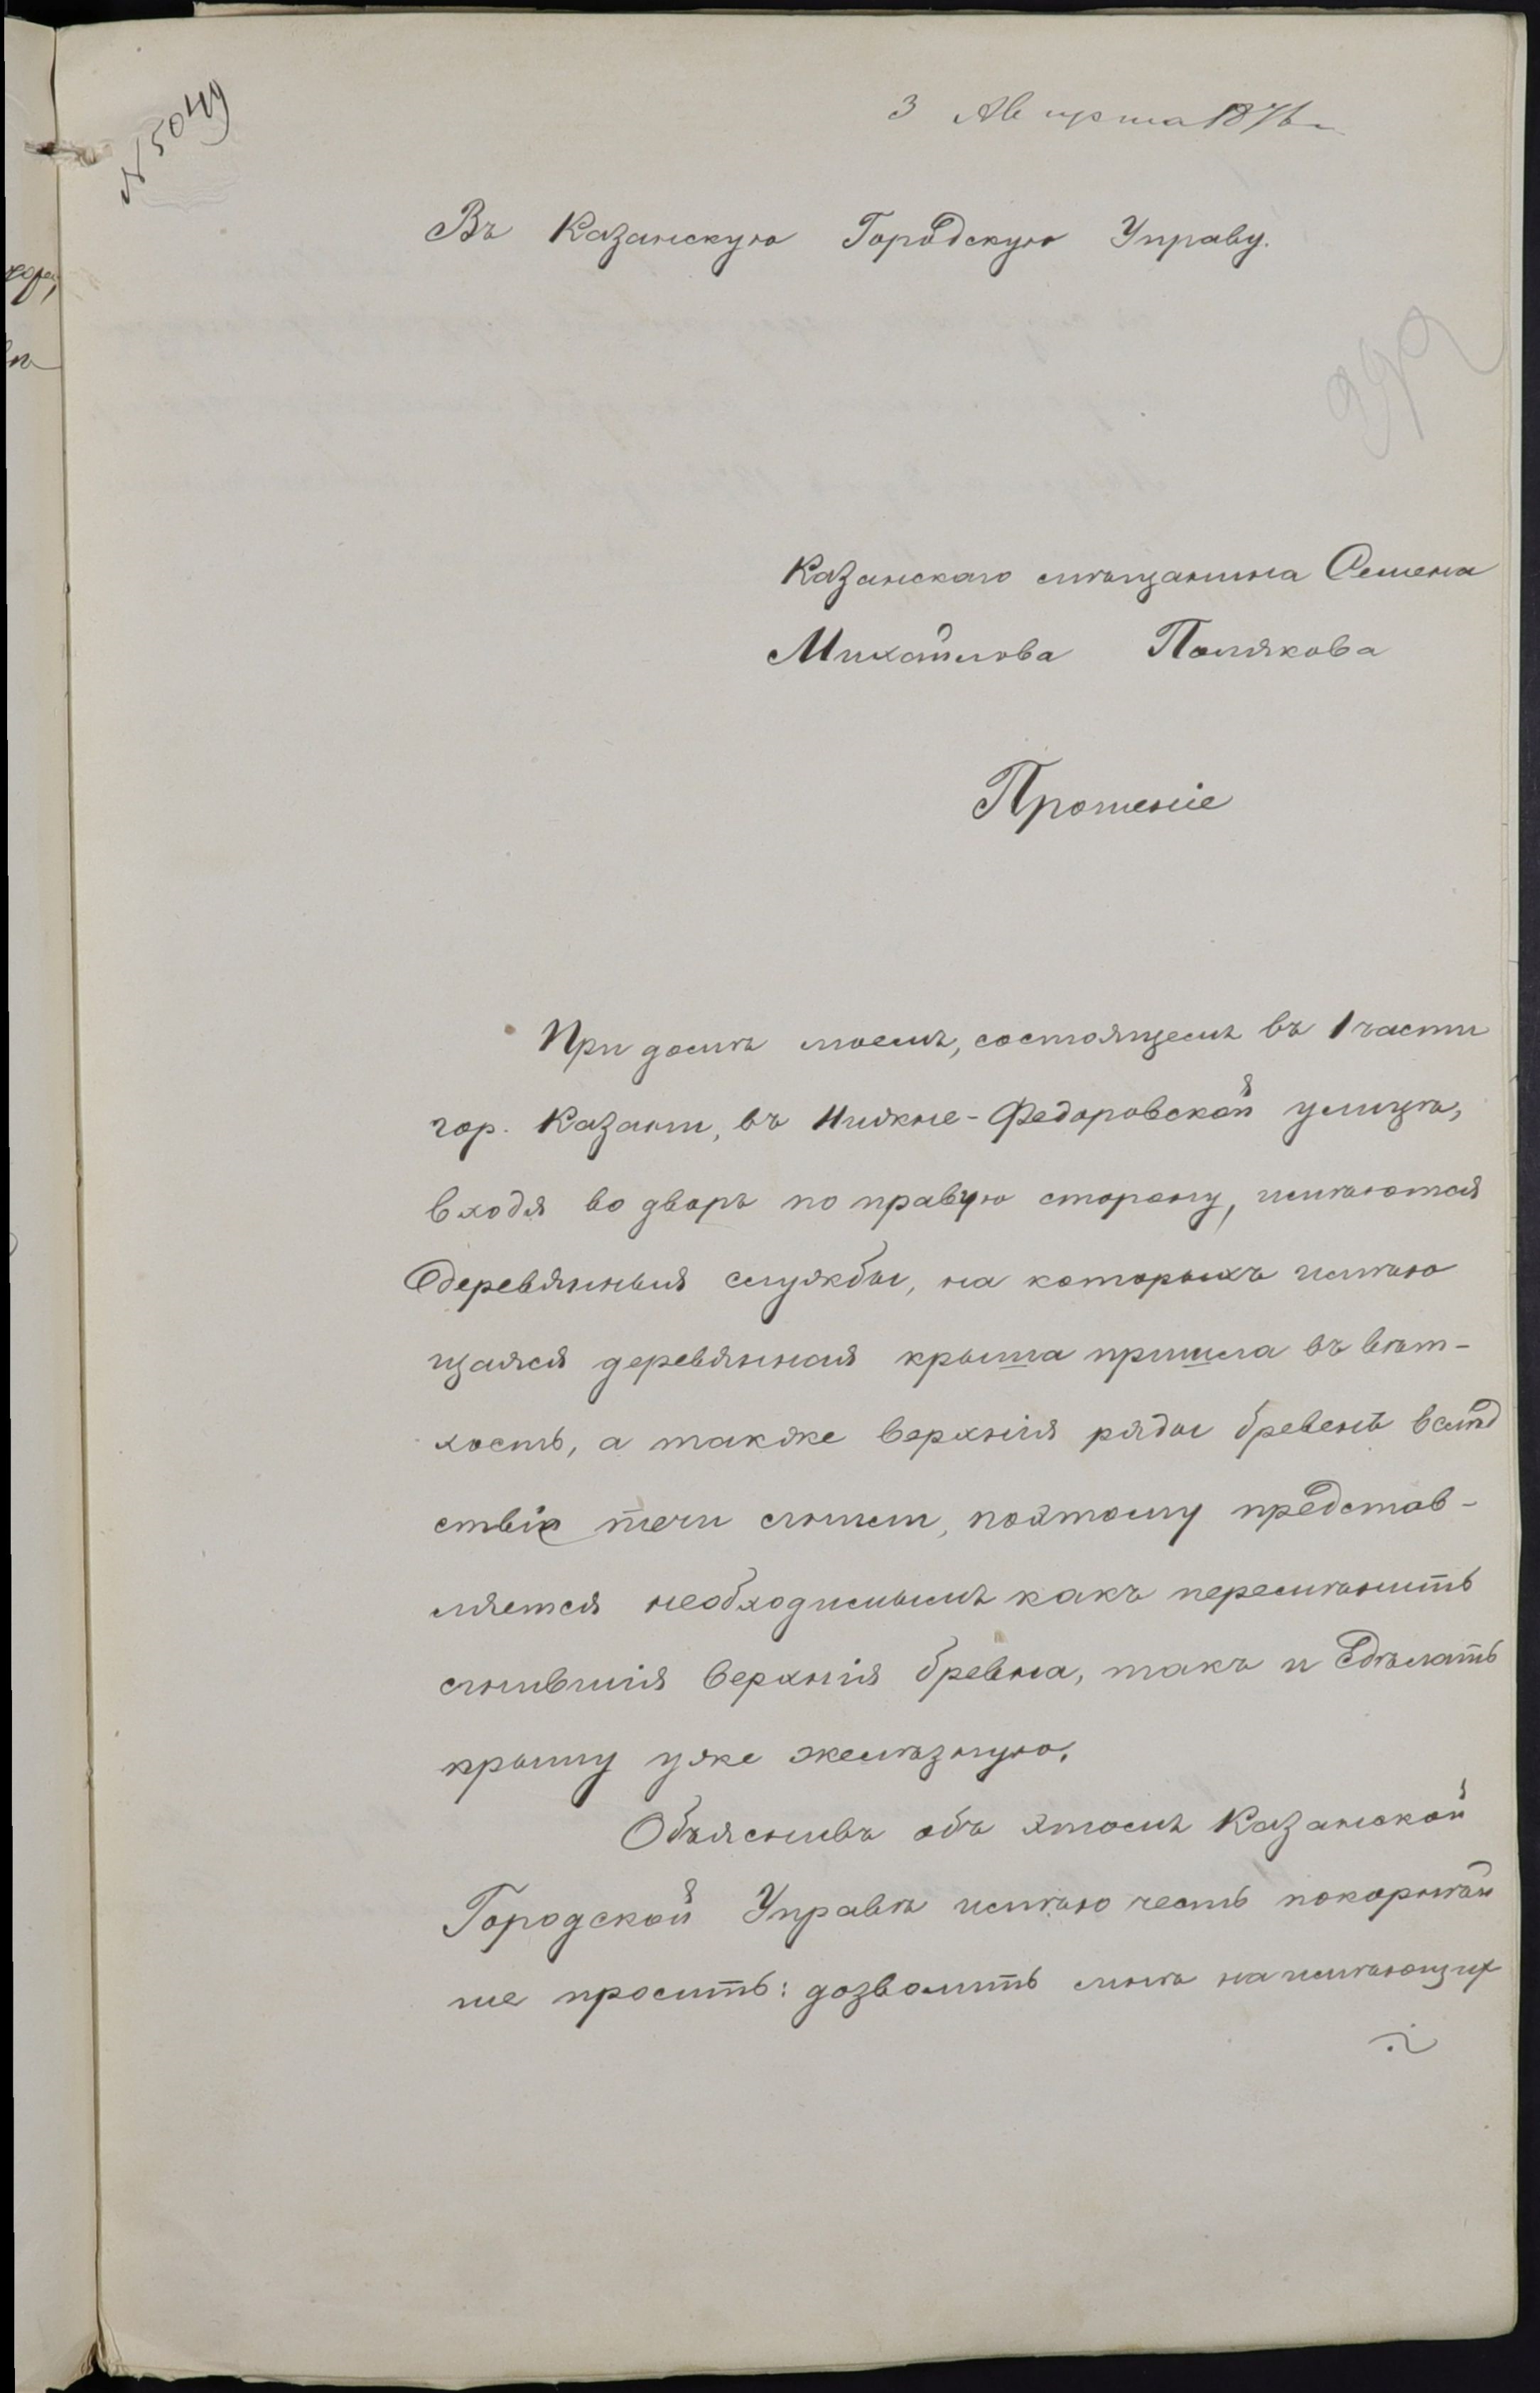 № 5049
3 Августа 1876 г.
Въ Казанскую Городскую Управу.
Казанскаго мѣщанина Семена
Михайлова Полякова
Прошеніе
При домѣ моемъ, состоящемъ въ 1 части
гор. Казани, въ Нижне-Федоровской улицѣ,
входя во дворъ по правую сторону, имѣются
деревянныя службы, на которыхъ имѣю
щаяся деревянная крыша пришла въ вѣт-
хость, а также верхнія ряды бревенъ вслѣд
ствіе течи сгнили, поэтому представ-
ляется необходимымъ какъ перемѣнить
сгнившія верхнія бревна, такъ и сдѣлать
крышу уже желѣзную.
Объяснивъ объ этомъ Казанской
Городской Управѣ имѣю честь покорнѣй
ше просить: дозволить мнѣ на имѣющих